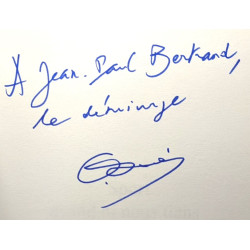 A Jean-Paul Bertrand,
le démiurge